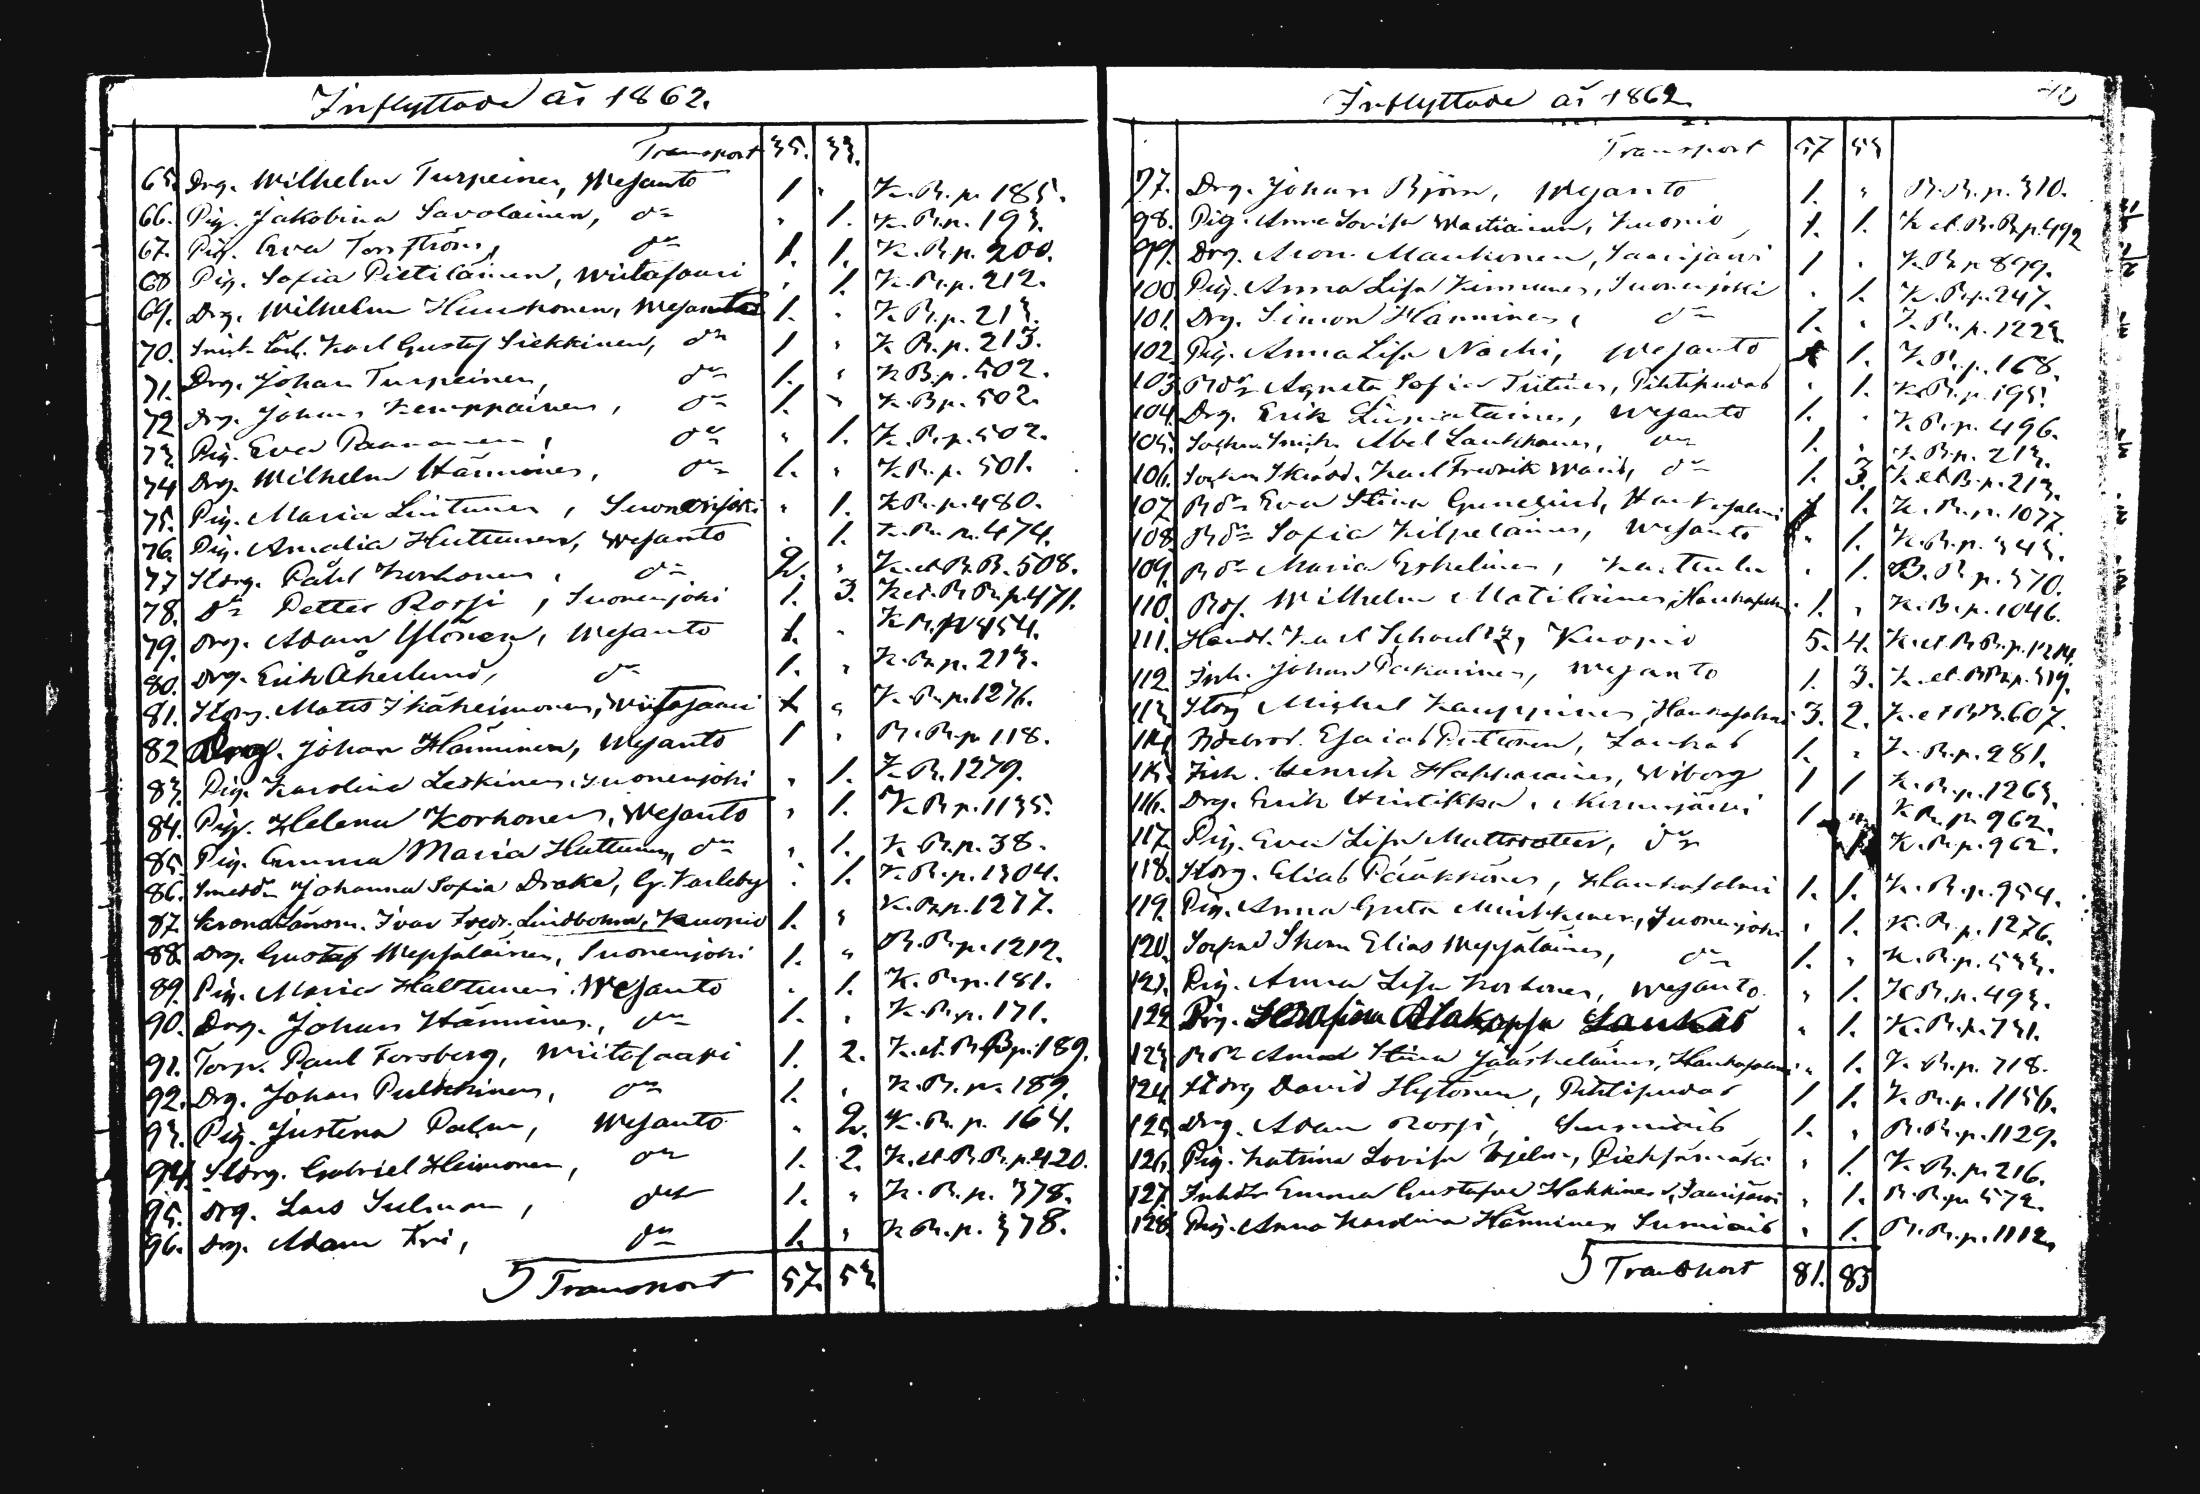 Inflyttade år 1862.
Transport 35. 33.
65. Drg. Wilhelm Turpeinen, Wesanto 1. " K. B. p. 185.
66. Pig. Jakobina Savolainen, do " 1. K. B. p. 193.
67. Pig. Eva Torström, do 1. 1. K. B. p. 200.
68 Pig. Sofia Pietiläinen, Wiitasaari " 1. K. B. p. 212.
69. Drg. Wilhelm Huuskonen, Wesanto 1. " K. B. p. 213.
70. Karl Gustaf Siekkinen, do 1 " K B. p. 213.
71. Drg. Johan Turpeinen, do 1. " K B. p. 502.
72 Drg. Johan Kemppainen, do 1. " K. B p. 502.
73 Pig. Eva Paananen, do " 1. K. B. p. 502.
74 Drg. Wilhelm Hänninen, do 1. " K B. p. 501.
75. Pig. Maria Lintunen, Suonenjoki " 1. K B. p. 480.
76. Pig. Amalia Huttunen, Wesanto . 1. K. B. p. 474.
77 Stdrg. Påhl Korhonen, do 2. " K. et B. B. 508.
78. do Petter Rossi, Suonenjoki 1. 3. K et. B B. p. 471.
79. Drg. Adam Ylönen, Wesanto 1. " K B. p. 454.
80. Drg. Erik Åkerlund, do 1. " K. B. p. 213.
81. Stdrg. Mats Ikäheimonen, Wiitasaari 1 " K. B. p. 1276.
82 Drg. Johan Hänninen, Wesanto 1 " B. B. p. 118.
83. Pig. Karolina Leskinen, Suonenjoki " 1. K B. 1279.
84. Pig. Helena Korhonen, Wesanto " 1. K B p. 1135.
85. Pig. Emma Maria Huttunen, do " 1. K B. p. 38.
86. Smedd. Johanna Sofia Drake, G. Karleby . 1. K. B. p. 1304.
87. Kronolänsm. Ivar Fredr. Lindbohm, Kuopio 1. " K. B. p. 1277.
88. Drg. Gustaf Wepsäläinen, Suonenjoki 1. " B. B. p. 1212.
89. Pig. Maria Halttunen, Wesanto . 1. K. B. p. 181.
90. Drg. Johan Hänninen, do 1. " K. B. p. 171.
91. Torp. Paul Forsberg, Wiitasaari 1. 2. K. et. B B. p. 189.
92. Drg. Johan Pulkkinen, do 1. . K. B. p. 189.
93. Pig. Justina Palm, Wesanto " 2. K. B. p. 164.
94. Stdrg. Gabriel Heimonen, do 1. 2. K. et B B. p. 420.
95. Drg. Lars Sulman, do 1. " K. B. p. 378.
96. Drg. Adam Fri, do 1. " K. B. p. 378.
Transport 57. 53
Inflyttade år 1862.
Transport 57 53
97. Drg. Johan Björn, Wesanto 1. " B. B. p. 310.
98. Pig. Anna Lovisa Wartiainen, Kuopio 1. 1. K et. B. B p. 492
99. Drg. Aron Manhonen, Saarijärvi 1 . K. B. p 899.
100. Pig. Anna Lisa Kinnunen, Suonenjoki . 1. K. B. p. 247.
101. Drg. Simon Hänninen, do 1. " K. B. p. 1223
102. Pig. Anna Lisa Noehi, Wesanto 1. K. B. p. 168.
103. Agneta Sofia Tiitinen, Pihtipudas " 1. K. B. p. 195.
104. Drg. Erik Wesanto 1. . K B. p. 496.
105. Abel Laukkanen, do 1. . K. B. p. 213.
106. Karl Fredrik do 1. 3. K et B. p. 213.
107. Eva Stina Hankasalmi 1. K. B. p. 1077.
108. Sofia Kilpeläinen, Wesanto " 1. K. B. p. 343.
109. Maria Eskelinen, Karttula . 1. B. B p. 570.
110. Wilhelm Matilainen, Hankasalmi 1. " K. B. p. 1046.
111. Handl. Karl Schoultz, Kuopio 5. 4. K. et B B. p. 1214.
112. Inh. Johan Pakarinen, Wesanto 1. 3. K. et. B B. p. 319.
113. Stdrg Michel Kauppinen, Hankasalmi 3. 2. K. et B B. 607.
114. Esaias Puttonen, Laukas 1. " K. B. p. 281.
115. Inh. Henrik Wiborg 1 1 K. B. p. 1263.
116. Drg. Erik Hintikka, 1 K B. p. 962.
117. Pig. Eva Lisa Mattsdotter, do K. B. p. 962.
118. Stdrg. Elias Pääkkönen, Hankasalmi 1. 1. K. B. p. 954.
119. Pig. Anna Greta Suonenjoki " 1. K. B. p. 1276.
120. Elias Wepsäläinen, do 1. " K. B. p. 533.
121. Pig. Anna Lisa Korhonen, Wesanto " 1. K B. p. 493.
122 Pig. Serafina Laukas " 1. K. B. p. 731.
123. Anna Stina Jääskeläinen, Hankasalmi " 1. K. B. p. 718.
124. Stdrg David Hytönen, Pihtipudas 1 1. K. B. p. 1156.
125. Drg. Adam Rossi, Sumiais 1. " B. B. p. 1129.
126. Pig. Katrina Lovisa Hjelm, Pieksämäki " 1. K. B. p. 216.
127. Emma Gustafva Hakkinen, Saarijärvi " 1. B. B. p. 572.
128. Pig. Anna Karolina Hänninen Sumiais " 1. B. B. p. 1112.
Transport 81. 83